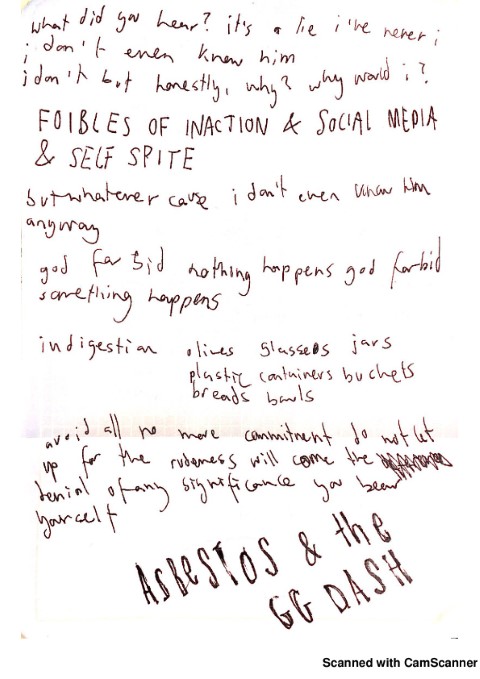 what did you hear? it's a lie i've never i
i don't even know him
i don't but honestly, why? why would i?
FOIBLES OF INACTION & SOCIAL MEDIA
& SELF SPITE
but whatever cause i don't even know him
anyway
god forbid nothing happens god forbid
something happens
indigestion olives glasses jars
plastic containers buckets
breads bowls
avoid all no more commitment do not let
up for the rudeness will come the
denial of any significance you bear
yourself
ASBESTOS & the
GG DASH
Scanned with CamScanner